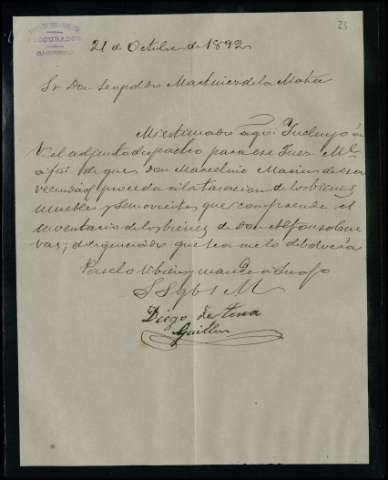 23
PROCURADOR
21 de Octubre de 1892
Sr Don Leopoldo Martinez de la Mata
Mi estimado amigo: Incluyo á
V. el adjunto despacho para ese Juez Ml
a fin de que Don Marcelino Marin de esa
vecindad proceda á la tasacion de los bienes
muebles y semovientes que comprende el
inventario de los bienes de Don Alfonso Cue
vas; diligenciado que sea me lo debolverá
Paselo V. bien y mande á su afo
S S q b s M
Diego de
Guillen